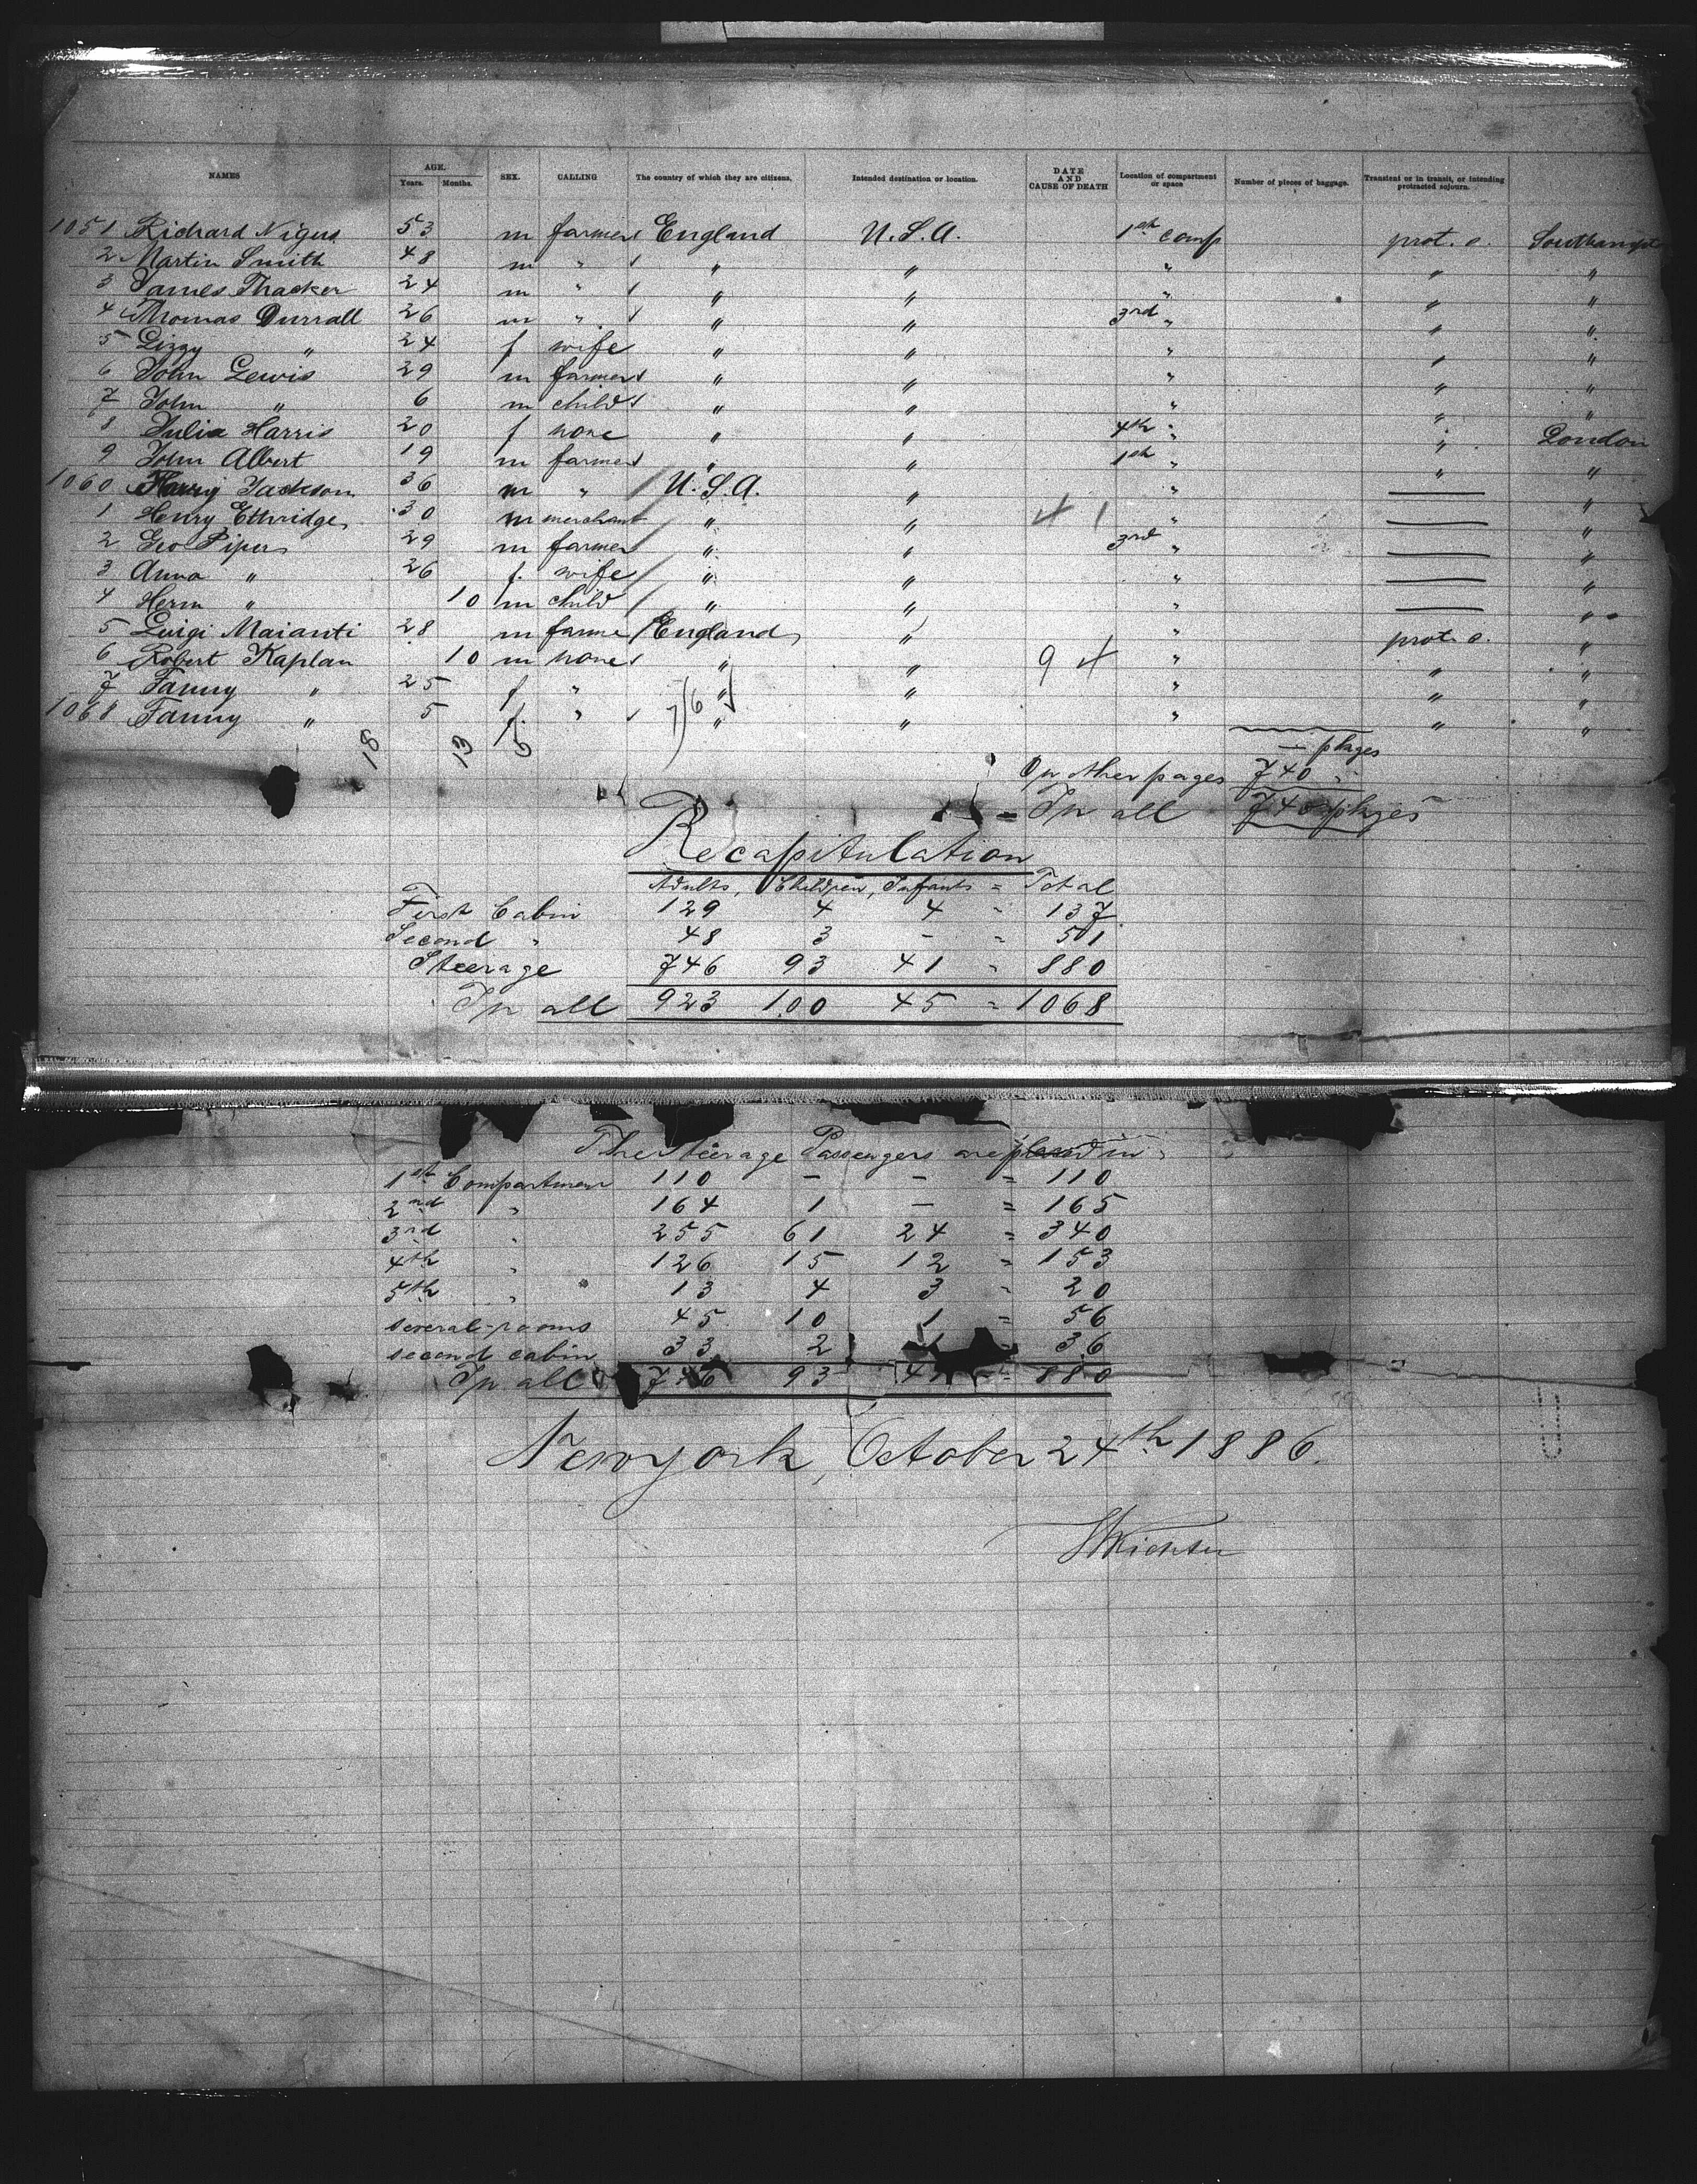 NAMES AGE. Years. Months. SEX. CALLING The country of which they are citizens. Intended destination or location. DATE AND CAUSE OF DEATH Location of compartment or space Number of pieces of baggage. Transient or in transit, or intending protracted sojourn.
1051 Richard Nigus 53 m farmer England U.S.A. 1st comp prot. s. Southampton
2 Martin Smith 48 m " " " " " "
3 James Thacker 24 m " " " " " "
4 Thomas Durrall 26 m " " " 3rd " " "
5 Lizzy " 24 f wife " " " " "
6 John Lewis 29 m farmer " " " " "
7 John " 6 m child " " " " "
8 Julia Harris 20 f none " " 4th " " London
9 John Albert 19 m farmer " " 1st " " "
1060 Harry Jackson 36 m " U.S.A. " " — "
1 Henry Ethridge 30 m merchant " " 4 1 " — "
2 Geo Piper 29 m farmer " " 3rd " — "
3 Anna " 26 f. wife " " " — "
4 Herm " 10 m child " " " — "
5 Luigi Maianti 28 m farmer England " " prot. s. "
6 Robert Kaplan 10 m none " " 9 4 " " "
7 Fanny " 25 f " " " " " "
1068 Fanny " 5 f. " " " " " "
18 13 5
— pkges
On other pages 740 "
In all 740 pkges
Recapitulation
Adults, Children, Infants = Total
First Cabin 129 4 4 = 137
Second " 48 3 - = 51
Steerage 746 93 41 = 880
In all 923 100 45 = 1068
The Steerage Passengers are placed in
1st Compartment 110 - - = 110
2nd " 164 1 - = 165
3rd " 255 61 24 = 340
4th " 126 15 12 = 153
5th " 13 4 3 = 20
several-rooms 45 10 1 = 56
second cabin 33 2 1 = 36
In all 746 93 41 = 880
Newyork, October 24th 1886.